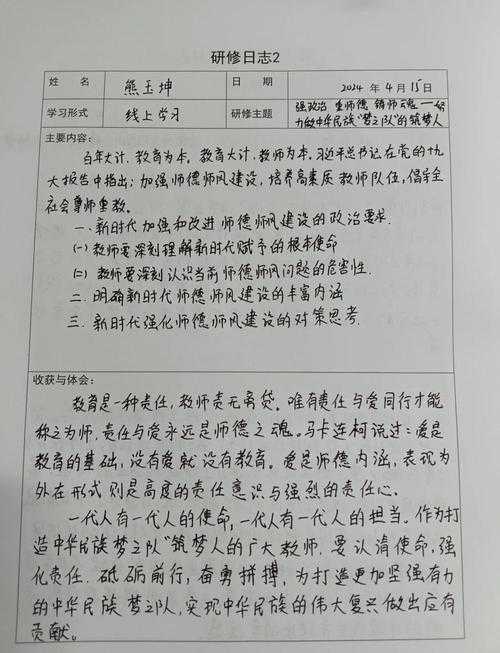 研修日志2
姓 名 熊玉坤 日 期 2024 年 4 月 15日
学习形式 线上学习 研修主题 强政治 重师德 铸师魂——努
力做中华民族"梦之队"的筑梦人
主要内容：
百年大计，教育为本。教育大计，教师为本。习近平总书记在党的十九
大报告中指出：加强师德师风建设，培养高素质教师队伍，倡导全
社会尊师重教。
一.新时代加强和改进师德师风建设的政治要求.
㈠教师要深刻理解新时代赋予的根本使命
㈡教师要深刻认识当前师德师风问题的危害性.
二.明确新时代师德师风建设的丰富内涵
三.新时代强化师德师风建设的对策思考.
收获与体会：
教育是一种责任，教师责无旁贷。唯有责任与爱同行才能
称之为师，责任与爱永远是师德之魂。马卡连柯说过：爱是
教育的基础，没有爱就没有教育。爱是师德内涵，表现为
外在形式则是高度的责任意识与强烈的责任心。
一代人有一代人的使命，一代人有一代人的担当。作为打
造中华民族梦之队"筑梦人的广大教师，要认清使命，强
化责任.砥砺前行，奋勇拼搏，为打造更加坚强有力
的中华民族梦之队，实现中华民族的伟大复兴做出应有
贡献。